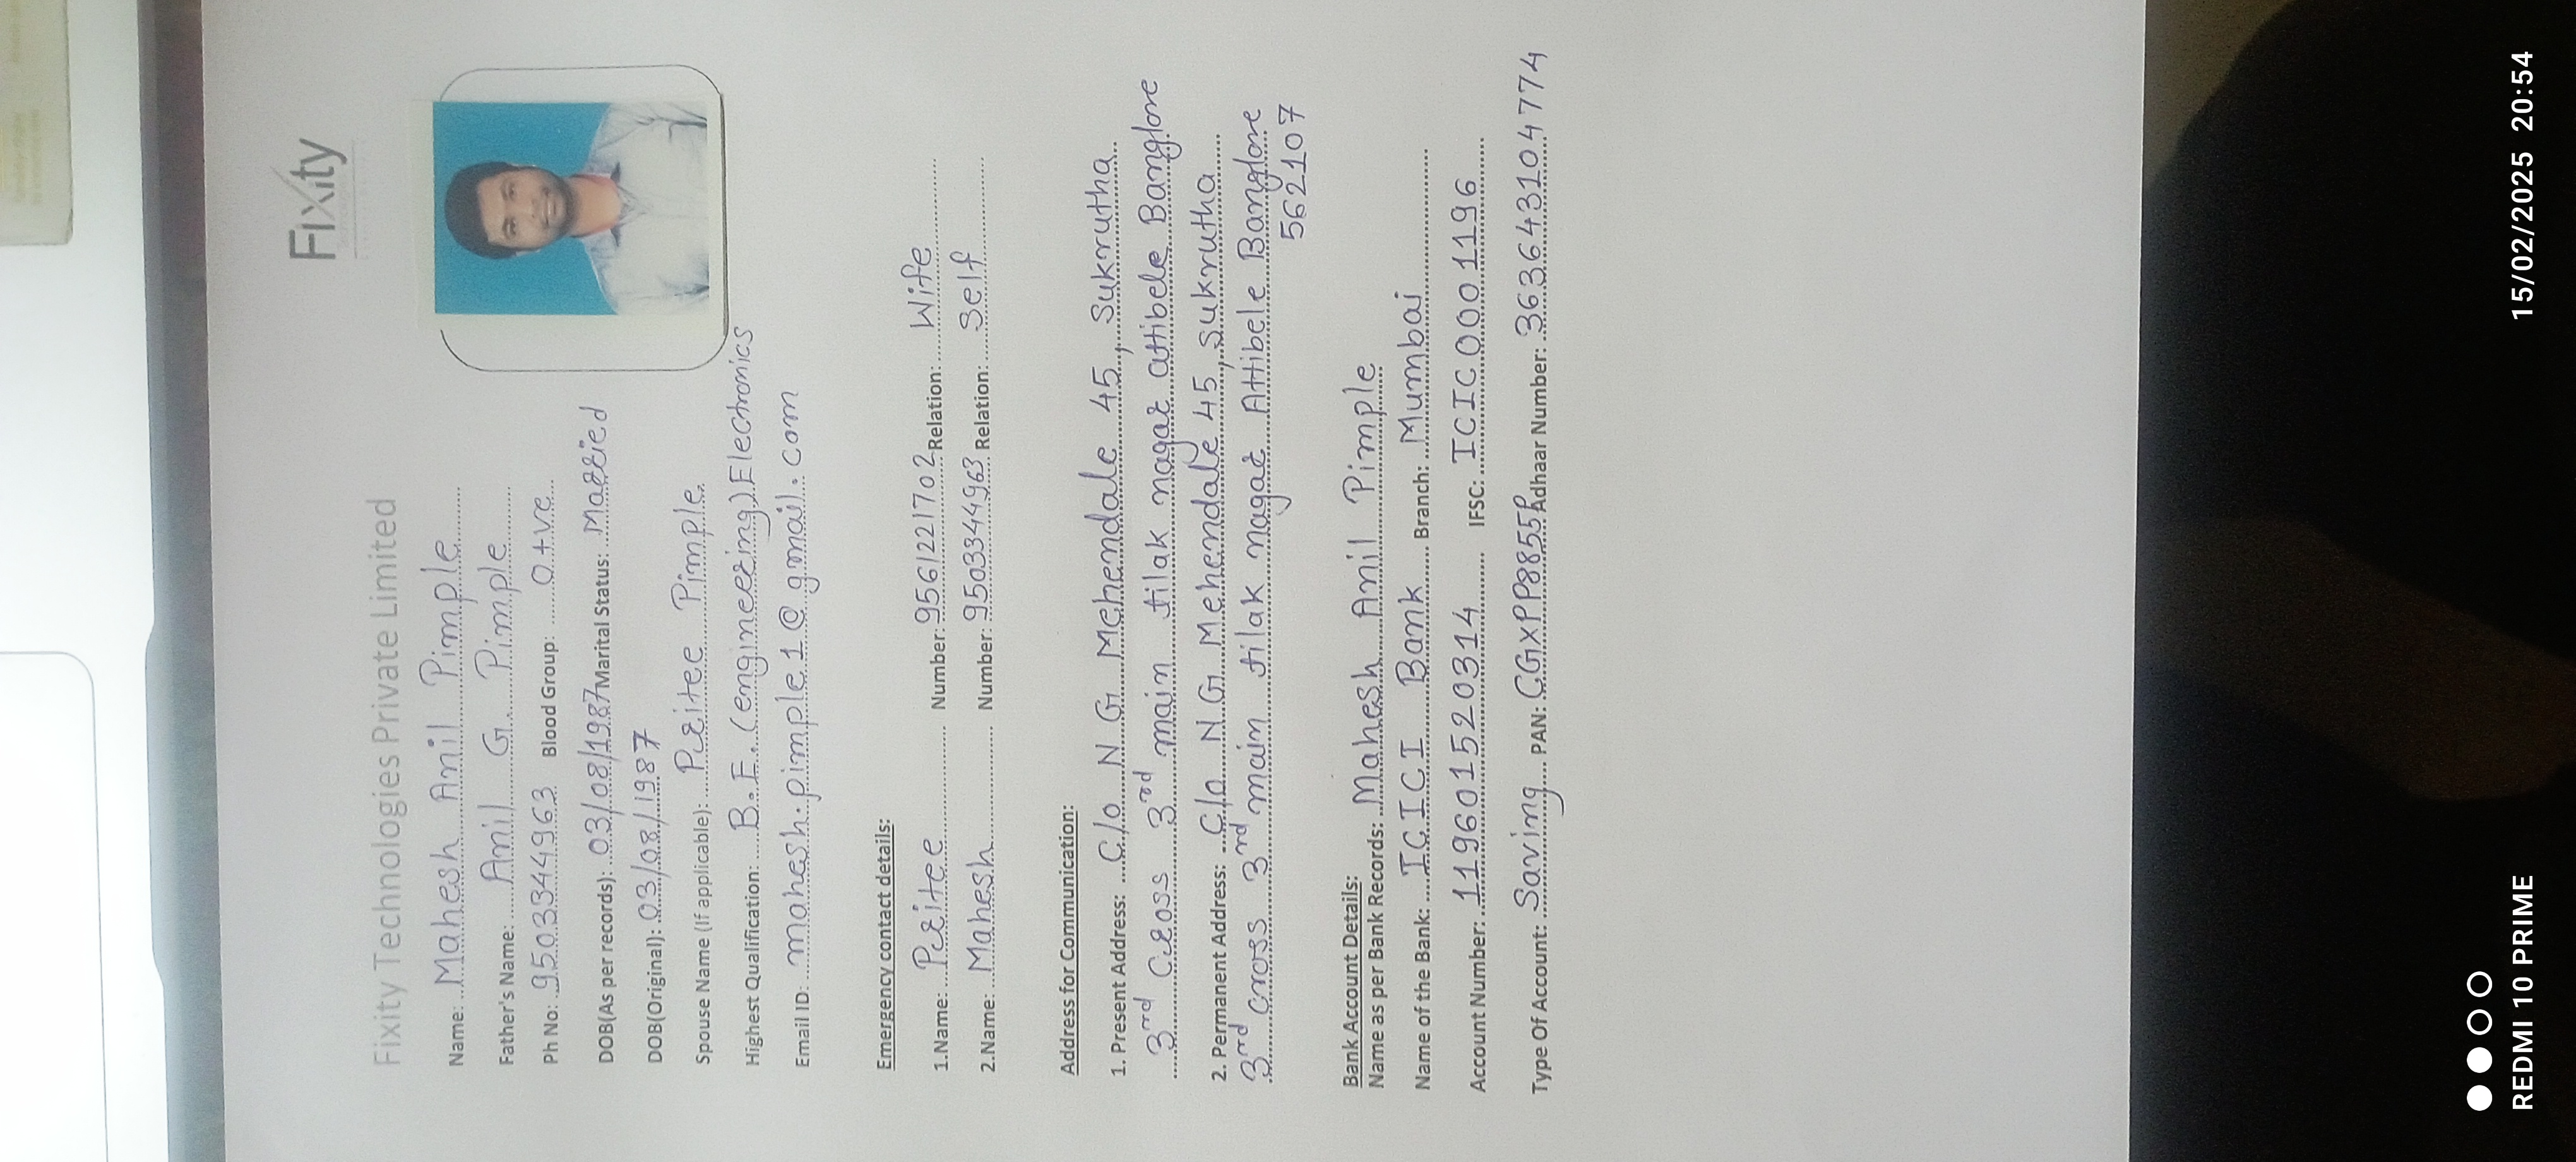 Fixity
Fixity Technologies Private Limited
Name: Mahesh Anil Pimple
Father's Name: Anil G. Pimple
Ph No: 9503344963 Blood Group: O+ve
DOB(As per records): 03/08/1987 Marital Status: Married
DOB(Original): 03/08/1987
Spouse Name (If applicable): Pritee Pimple
Highest Qualification: B.E. (engineering) Electronics
Email ID: mahesh.pimple1@gmail.com
Emergency contact details:
1.Name: Pritee Number: 9561221702 Relation: Wife
2.Name: Mahesh Number: 9503344963 Relation: Self
Address for Communication:
1. Present Address: C/o N G Mehendale 45, Sukrutha
3rd Cross 3rd main tilak nagar attibele Banglore
2. Permanent Address: C/o N G Mehendale 45, sukrutha
3rd cross 3rd main tilak nagar Attibele Banglore
562107
Bank Account Details:
Name as per Bank Records: Mahesh Anil Pimple
Name of the Bank: ICICI Bank Branch: Mumbai
Account Number: 119601520314 IFSC: ICIC0001196
Type Of Account: Saving PAN: CGXPP8855P Adhaar Number: 363643104774
REDMI 10 PRIME
15/02/2025 20:54